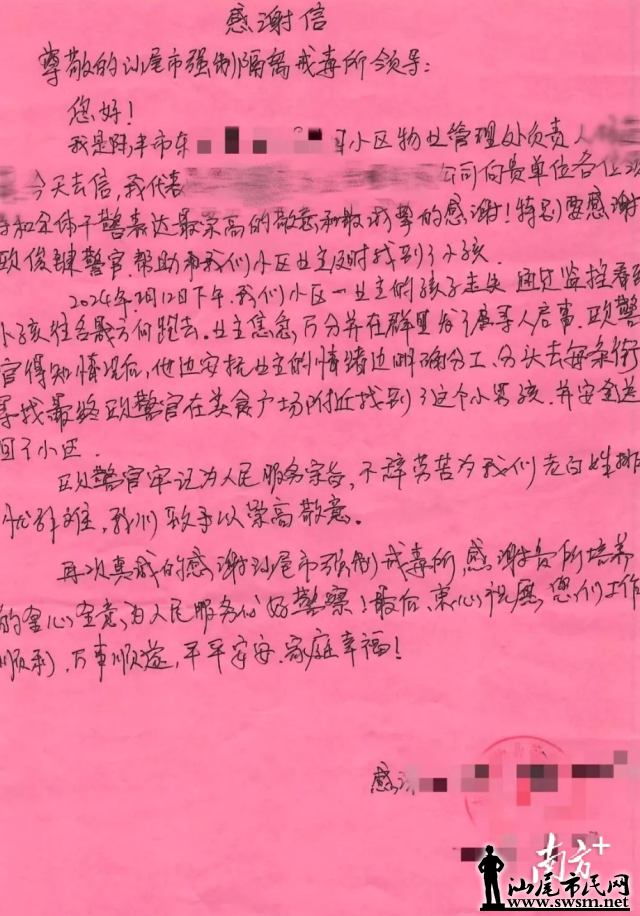 感谢信
尊敬的汕尾市强制隔离戒毒所领导:
您好!
我是陆丰市东 小区物业管理处负责人
今天去信,我代表 向贵单位各位
和全体干警表达最崇高的敬意和最诚挚的感谢!特别要感谢
欧俊 警官帮助 我们小区业主及时找到了小孩。
2024年 月12日下午,我们小区一业主的孩子走失,通过监控看到
小孩往 方向跑去。业主焦急万分并在群里发了 寻人启事,欧警
官得知情况后,他边安抚业主的情绪边明确分工、分头去每条街
寻找最终欧警官在美食广场附近找到了这个小男孩,并安全送
回了小区.
欧警官牢记为人民服务宗旨,不辞劳苦为我们老百姓排
忧解难,我们 予以崇高敬意。
再次真诚的感谢汕尾市强制戒毒所,感谢 所培养
的全心全意为人民服务 好警察!最后,衷心祝愿您们工作
顺利,万事顺遂,平平安安.家庭幸福!
感谢
南方+
汕尾市民网
www.swsm.net